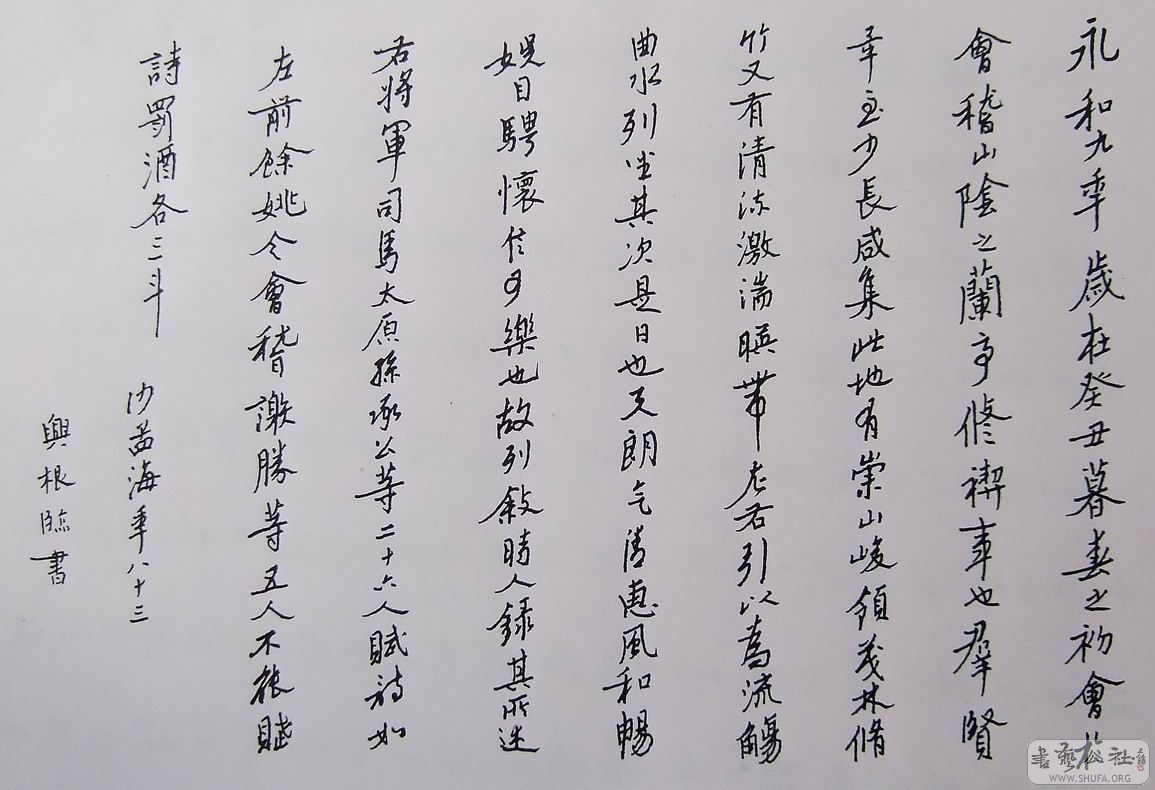 永和九年歲在癸丑暮春之初會於
會稽山陰之蘭亭脩禊事也羣賢
畢至少長咸集此地有崇山峻領茂林脩
竹又有清流激湍暎帶左右引以為流觴
曲水列坐其次是日也天朗气清惠風和暢
娛目騁懷信可樂也故列敘時人錄其所述
右將軍司馬太原孫承公等二十六人賦詩如
左前餘姚令會稽謝勝等五人不能賦
詩罰酒各三斗
沙孟海年八十三
興根臨書
WWW.SHUFA.ORG